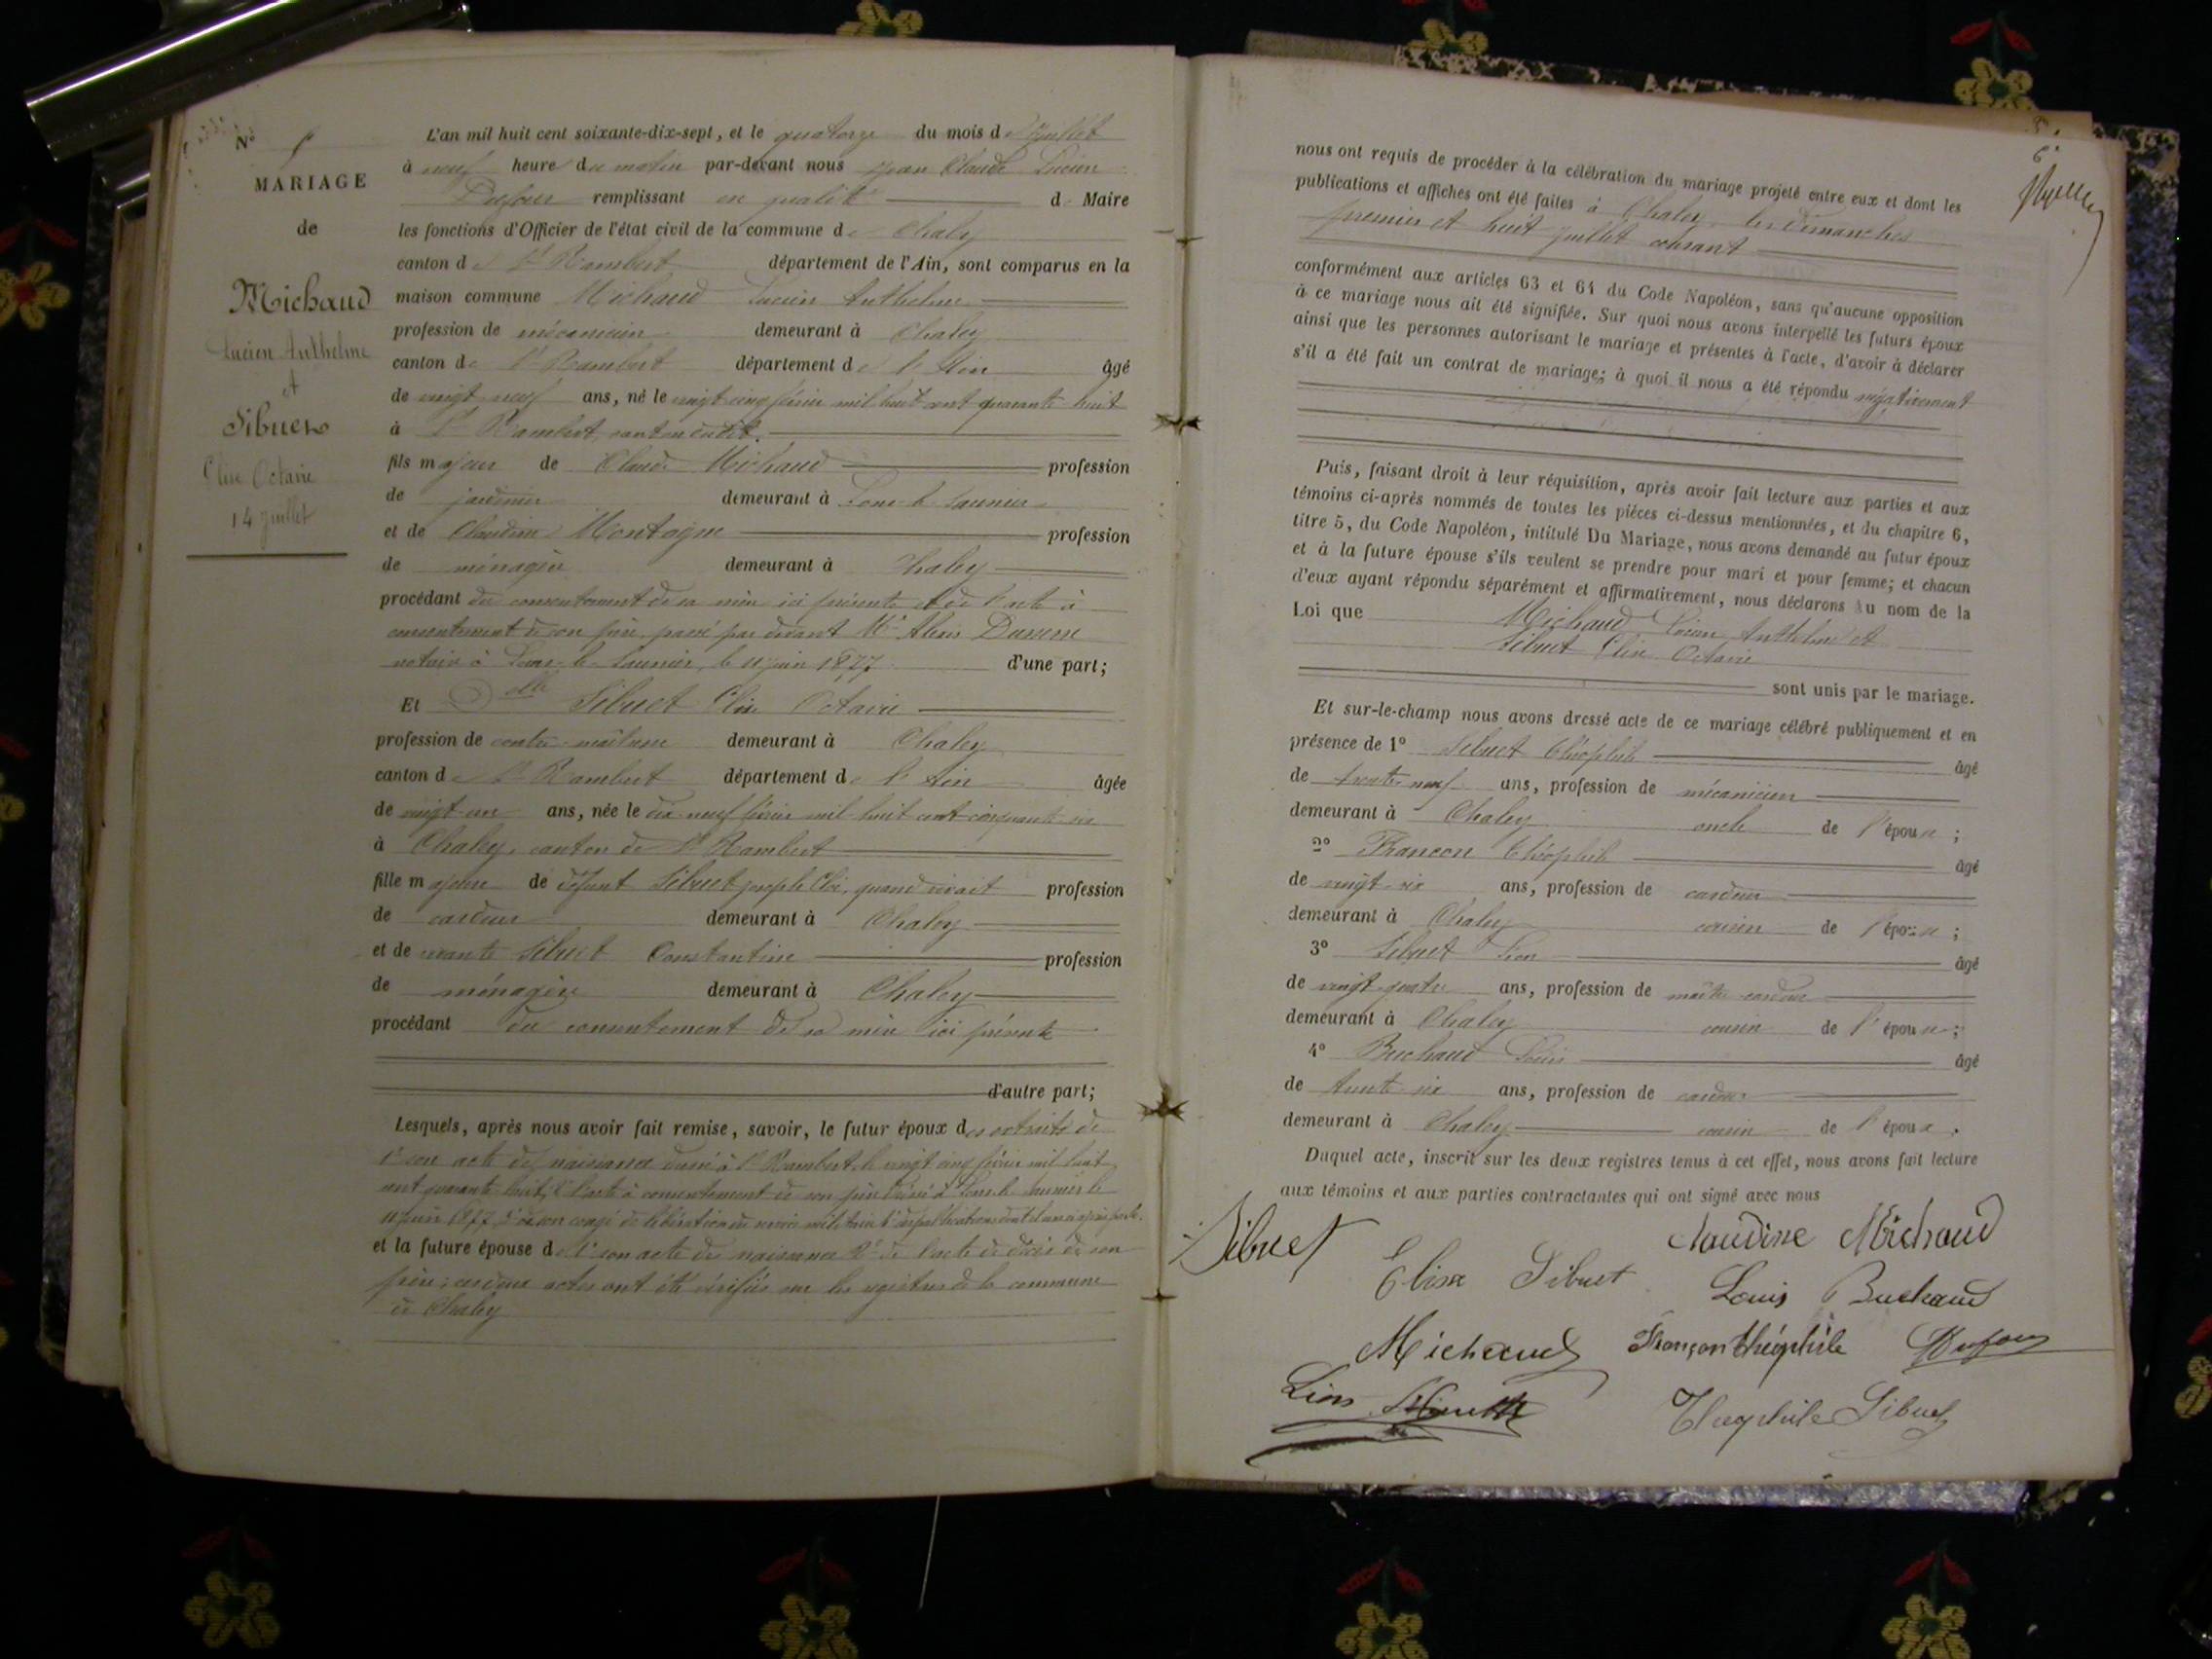 N°
MARIAGE
de
Michaud
Lucien Anthelme
et
Sibuet
Elise Octavie
14 juillet
L'an mil huit cent soixante-dix-sept, et le quatorze du mois de juillet
à neuf heure du matin par-devant nous Jean Claude Lucien
Dufour remplissant en qualité de Maire
les fonctions d'Officier de l'état civil de la commune de Chaley
canton de St Rambert département de l'Ain, sont comparus en la
maison commune Michaud Lucien Anthelme
profession de mécanicien demeurant à Chaley
canton de St Rambert département de l'Ain âgé
de vingt neuf ans, né le vingt cinq février mil huit cent quarante huit
à St Rambert, canton dudit.
fils majeur de Claude Michaud profession
de jardinier demeurant à Lons-le-Saunier
et de Claudine Montagne profession
de ménagère demeurant à Chaley
procédant du consentement de sa mère ici présente et de l'acte à
consentement de son père passé par devant Me Alexis
notaire à Lons-le-Saunier, le 11 juin 1877 d'une part;
Et Delle Sibuet Elise Octavie
profession de contre-maîtresse demeurant à Chaley
canton de St Rambert département de l'Ain âgée
de vingt-un ans, née le dix neuf février mil huit cent cinquante six
à Chaley, canton de St Rambert
fille majeure de défunt Sibuet Joseph Eloi, quand vivait profession
de cardeur demeurant à Chaley
et de vivante Sibuet Constantine profession
de ménagère demeurant à Chaley
procédant du consentement de sa mère ici présente
d'autre part;
Lesquels, après nous avoir fait remise, savoir, le futur époux des extraits de
1° son acte de naissance dressé à St Rambert le vingt cinq février mil huit
cent quarante huit, 2° l'acte à consentement de son père dressé à Lons le Saunier le
11 juin 1877 3° de son congé de libération du service militaire 4° des publications
et la future épouse de 1° son acte de naissance 2° de l'acte de décès de son
père; ces deux actes ont été vérifiés sur les registres de la commune
de Chaley
6
nous ont requis de procéder à la célébration du mariage projeté entre eux et dont les
publications et affiches ont été faites à Chaley les dimanches
premier et huit juillet courant
conformément aux articles 63 et 64 du Code Napoléon, sans qu'aucune opposition
à ce mariage nous ait été signifiée. Sur quoi nous avons interpellé les futurs époux
ainsi que les personnes autorisant le mariage et présentes à l'acte, d'avoir à déclarer
s'il a été fait un contrat de mariage; à quoi il nous a été répondu négativement
Puis, faisant droit à leur réquisition, après avoir fait lecture aux parties et aux
témoins ci-après nommés de toutes les pièces ci-dessus mentionnées, et du chapitre 6,
titre 5, du Code Napoléon, intitulé Du Mariage, nous avons demandé au futur époux
et à la future épouse s'ils veulent se prendre pour mari et pour femme; et chacun
d'eux ayant répondu séparément et affirmativement, nous déclarons au nom de la
Loi que Michaud Lucien Anthelme et
Sibuet Elise Octavie
sont unis par le mariage.
Et sur-le-champ nous avons dressé acte de ce mariage célébré publiquement et en
présence de 1° Sibuet Théophile âgé
de trente neuf ans, profession de mécanicien
demeurant à Chaley oncle de l'épouse;
2° Françon Théophile âgé
de vingt six ans, profession de cardeur
demeurant à Chaley cousin de l'épouse;
3° Sibuet Léon âgé
de vingt quatre ans, profession de maître cardeur
demeurant à Chaley cousin de l'épouse;
4° Buchaud Louis âgé
de trente six ans, profession de cardeur
demeurant à Chaley cousin de l'époux.
Duquel acte, inscrit sur les deux registres tenus à cet effet, nous avons fait lecture
aux témoins et aux parties contractantes qui ont signé avec nous
Sibuet
Elisa Sibuet
Claudine Michaud
Louis Buchaud
Michaud
Françon théophile
Dufour
Léon
Théophile Sibuet